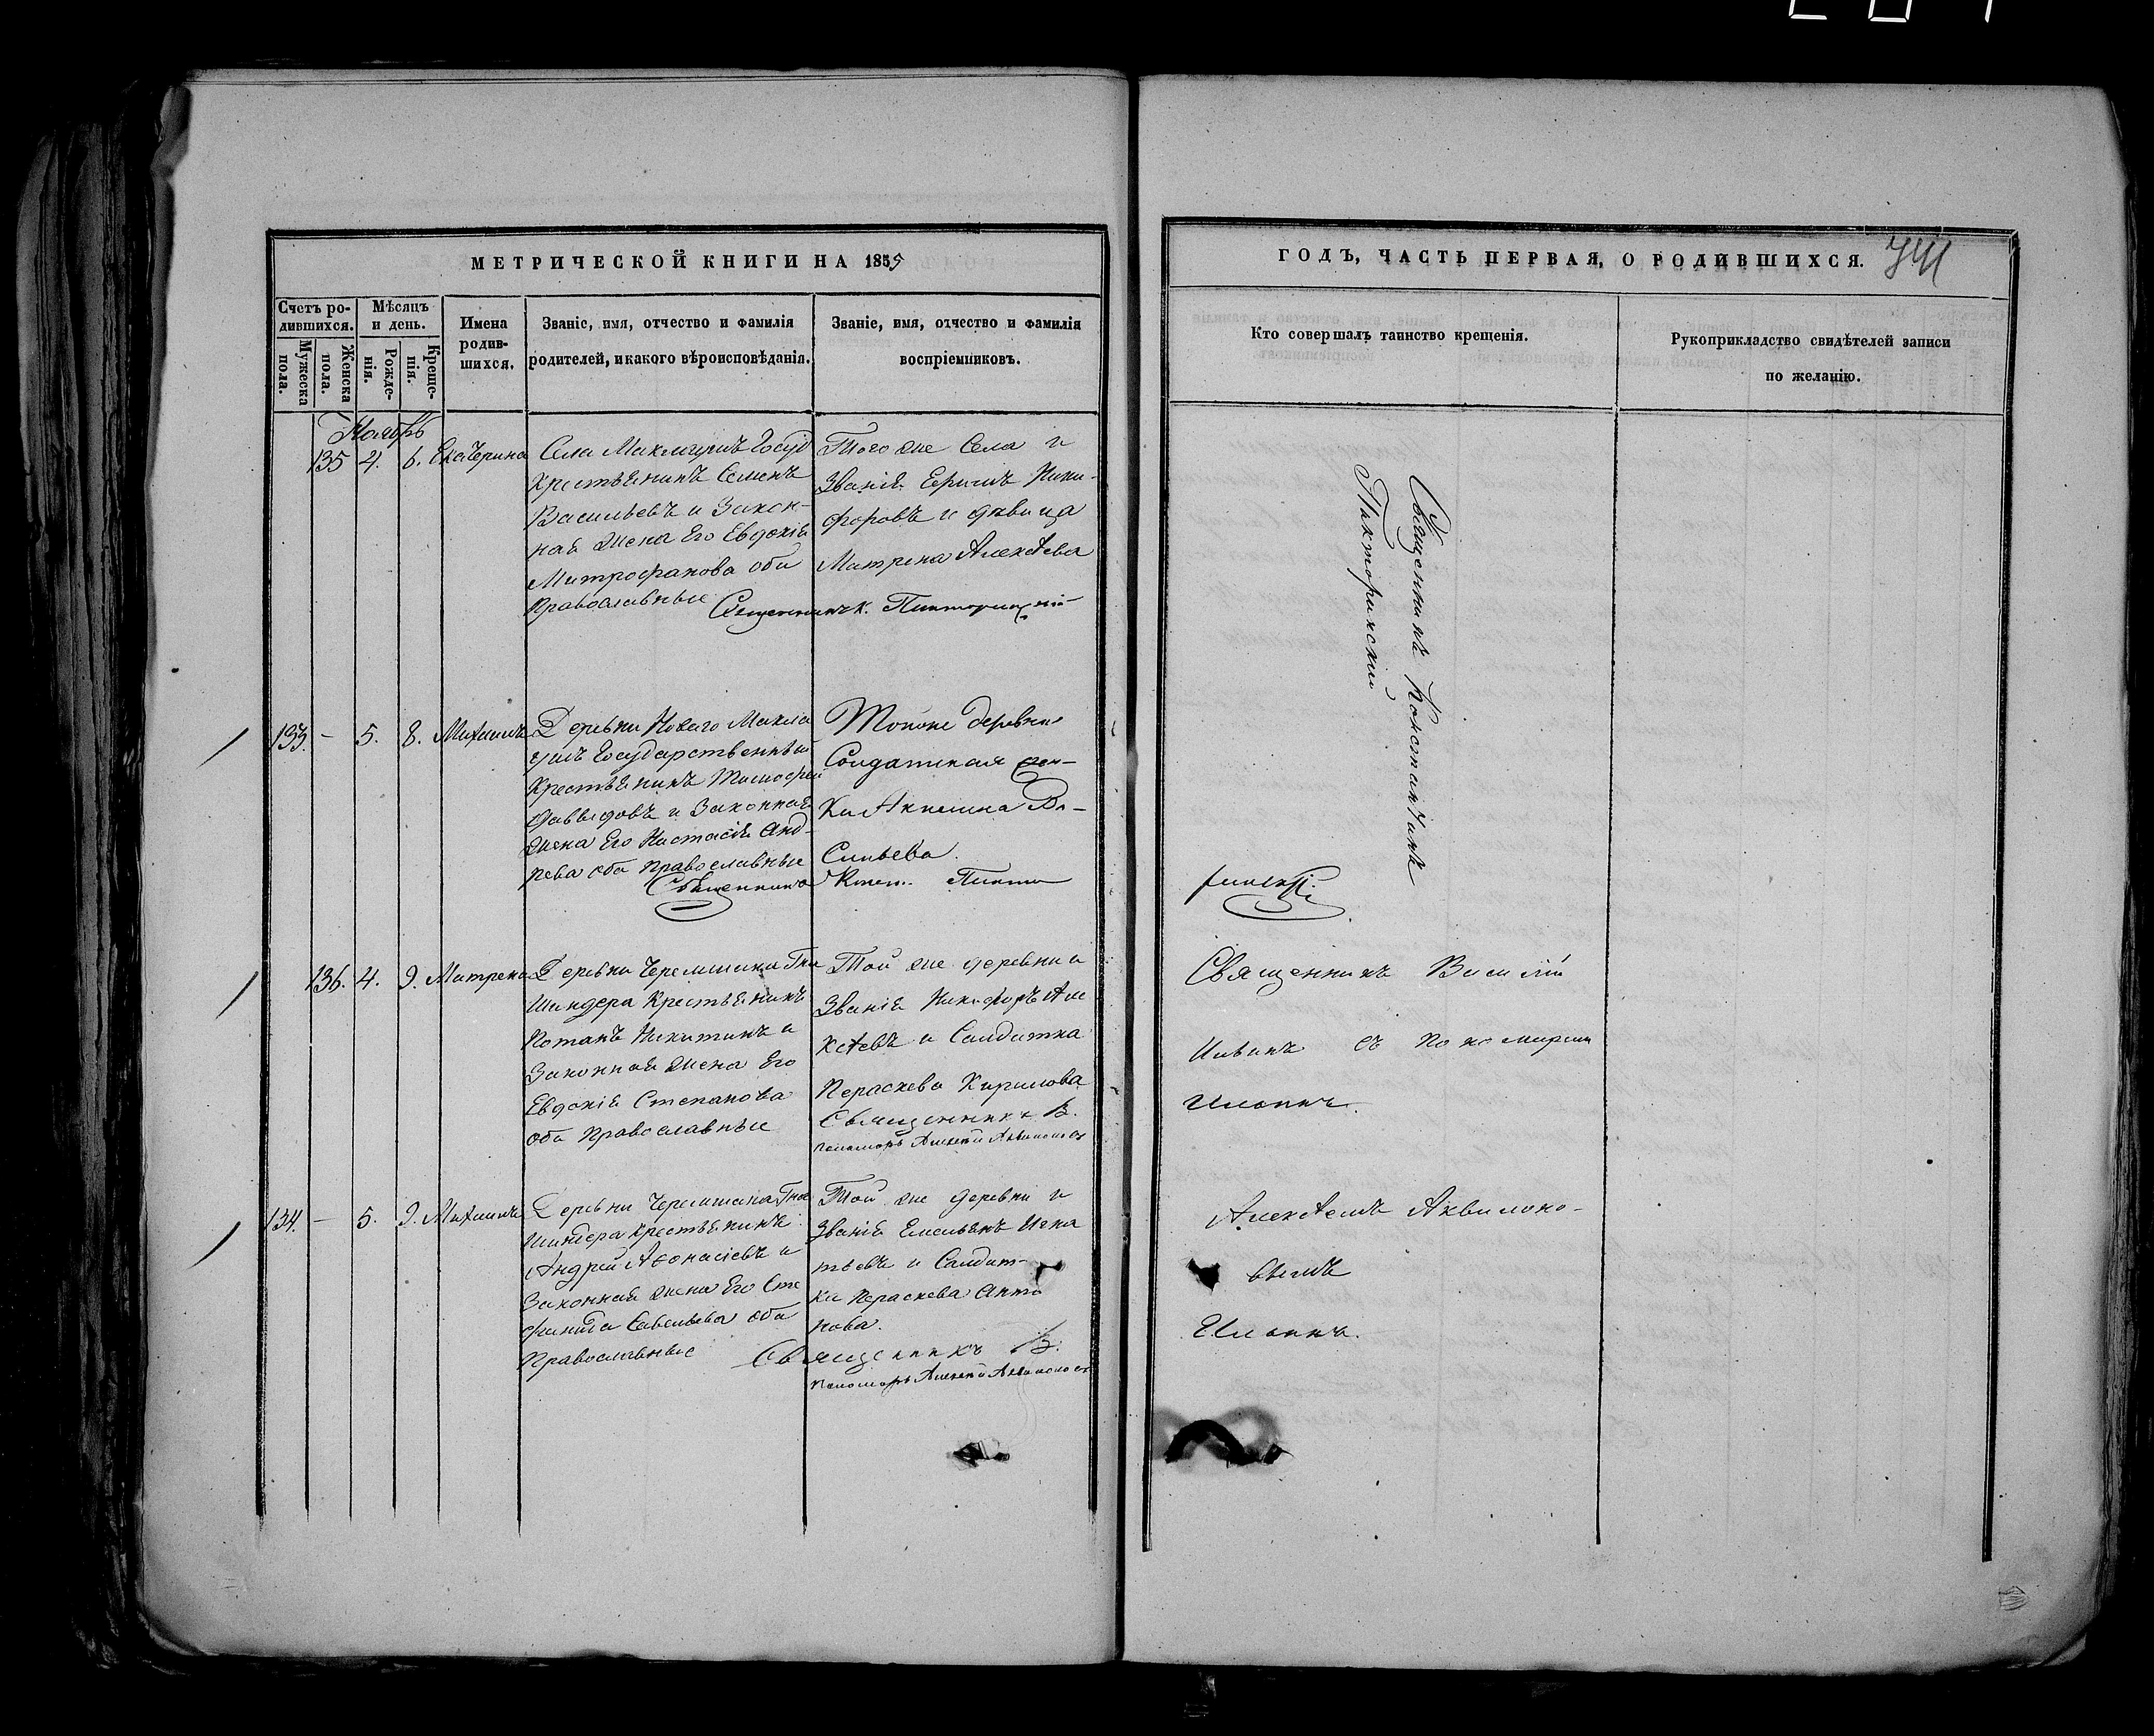 МЕТРИЧЕСКОЙ КНИГИ НА 1855
Счетъ родившихся.
Мужеска пола.
Женска пола.
Мѣсяцъ и день.
Рожденія.
Крещенія.
Имена родившихся.
Званіе, имя, отчество и фамилія
родителей, и какого вѣроисповѣданія.
Званіе, имя, отчество и фамилія
воспріемниковъ.
Ноябрь
135 4. 6. Екатерина
Села Маклаушъ Госуд
Крестьянинъ Семенъ
Васильевъ и Закон-
ная жена Его Евдокія
Митрофанова оба
Православные
Того же Села и
Званія Ефимъ Ники-
форовъ и дѣвица
Матрена Алексѣева
Священникъ К. Пикторинскій
133. - 5. 8. Михаилъ
Деревни Новаго Макла
ушъ Государственный
Крестьянинъ Тимофей
Давыдовъ и Законная
жена Его Настасія Анд-
реева оба Православные
Тойже деревни
Солдатская жен-
ка Акилина Ва-
сильева.
Священникъ Конст. Пикто
136. 4. 9. Матрена
Деревни Черемшана Гна
Шиндера Крестьянинъ
Потапъ Никитинъ и
Законная жена Его
Евдокія Степанова
оба Православные
Той же деревни и
Званія Никифоръ Але
ксѣевъ и Солдатка
Пераскева Кирилова
Священникъ В.
пономарь Алексѣй Аквилоновъ
134. - 5. 9. Михаилъ
Деревни Черемшана Гна
Шиндера Крестьянинъ
Андрей Аѳонасіевъ и
Законная жена Его Сте
фанида Савельева оба
Православные
Той же деревни и
Званія Емельянъ Игна
тьевъ и Солдат-
ка Пераскева Анто
нова.
Священникъ В.
пономарь Алексѣй Аквилоновъ
ГОДЪ, ЧАСТЬ ПЕРВАЯ, О РОДИВШИХСЯ.
Кто совершалъ таинство крещенія.
Рукоприкладство свидѣтелей записи
по желанію.
Священникъ Константинъ
Пикторинскій
Священникъ Василій
Ивановъ съ пономаремъ
Алексѣемъ Аквилоно-
вымъ